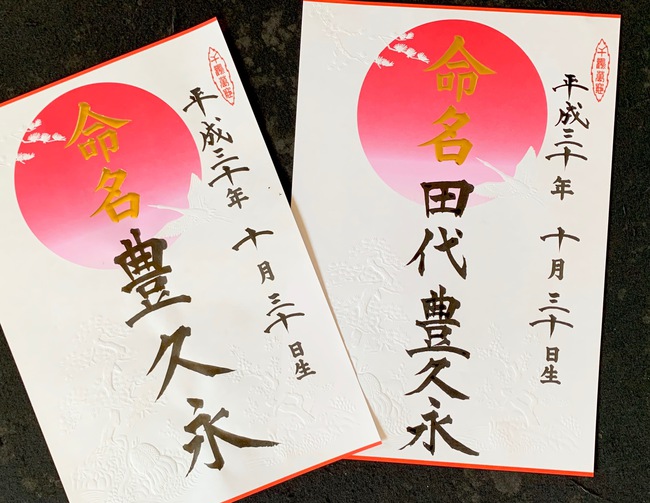 平成三十年 十月三十日生
命名
豊久永
平成三十年 十月三十日生
命名
田代 豊久永